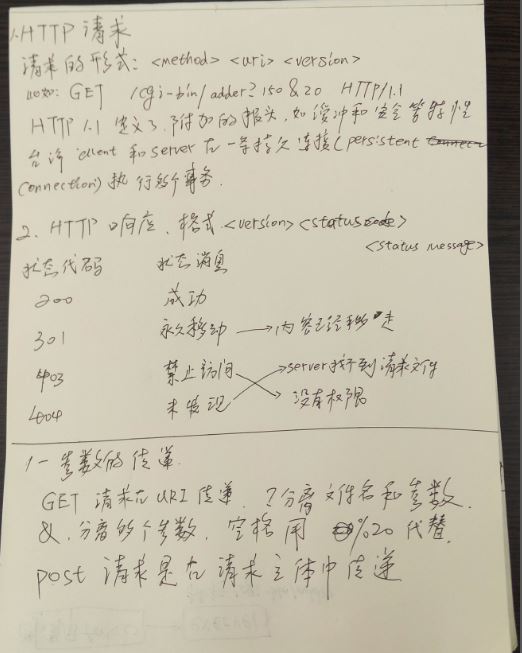 1. HTTP 请求
请求的形式: <method> <uri> <version>
比如: GET /cgi-bin/adder?150&20 HTTP/1.1
HTTP 1.1 定义了附加的报头,如缓冲和安全等特性
允许 client 和 server 在一条持久连接(persistent
connection)执行多个事务.
2. HTTP 响应. 格式 <version> <status code>
<status message>
状态代码 状态消息
200 成功
301 永久移动 → 内容已经移走
403 禁止访问 server找不到请求文件
404 未发现 没有权限
参数的传递.
GET 请求在 URI 传递. ?分离文件名和参数.
&.分离多个参数. 空格用 %20 代替.
post 请求是在请求主体中传递